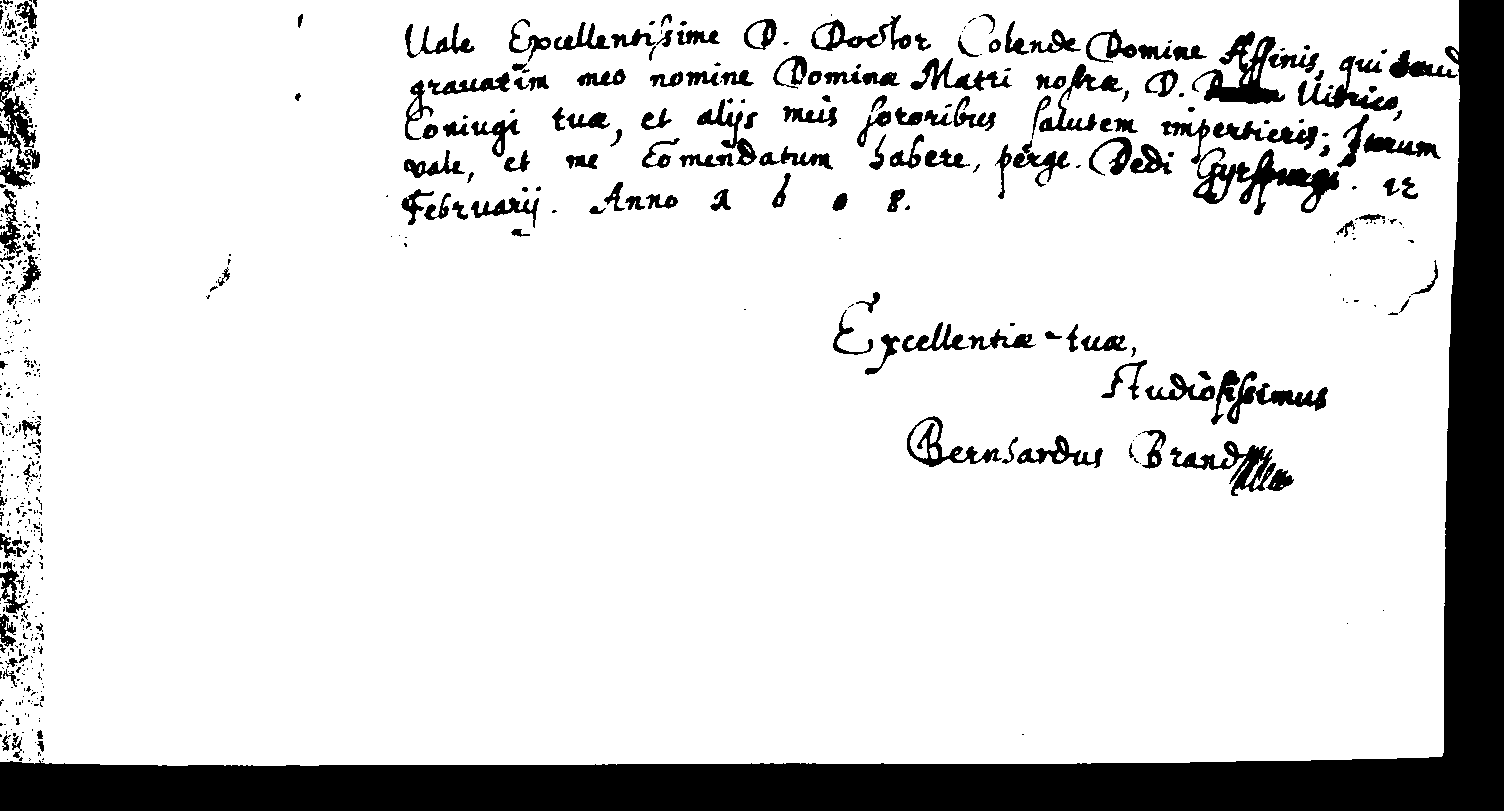 Vale Excellentissime D. Doctor Colende Domine Affinis, qui haud
gravatim meo nomine Dominæ Matri nostræ, D. Vitrico,
Coniugi tuæ, et alijs meis sororibus salutem impertieris; Iterum
vale, et me Comendatum habere, perge. Dedi 12
Februarij. Anno 1 6 0 8.
Excellentiæ tuæ,
Studiosissimus
Bernhardus Brand